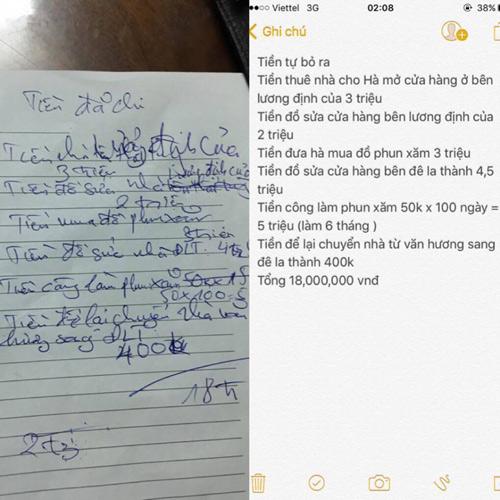 Tiền đã chi
3 triệu
2 triệu
Tiền mua đồ phun xăm
3 triệu
Tiền đồ sửa nhà ĐLT. 4tr
Tiền công làm phun xăm
50x100=5
Tiền để lại chuyển nhà văn
hương sang ĐLT
400k
18tr
Viettel 3G 02:08 38%
Ghi chú
Tiền tự bỏ ra
Tiền thuê nhà cho Hà mở cửa hàng ở bên
lương định của 3 triệu
Tiền đồ sửa cửa hàng bên lương định của
2 triệu
Tiền đưa hà mua đồ phun xăm 3 triệu
Tiền đồ sửa cửa hàng bên đê la thành 4,5
triệu
Tiền công làm phun xăm 50k x 100 ngày =
5 triệu (làm 6 tháng )
Tiền để lại chuyển nhà từ văn hương sang
đê la thành 400k
Tổng 18,000,000 vnđ